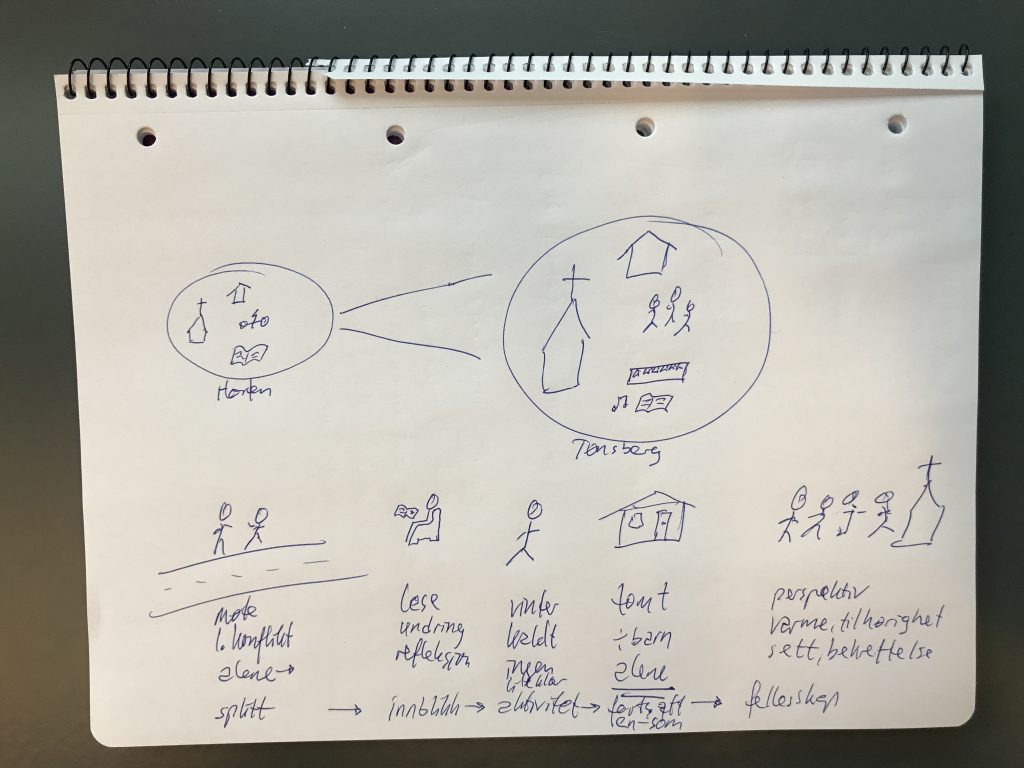 Horten
Tønsberg
møte
1. konflikt
alene →
splitt
→
lese
undring
refleksjon
innblikk
→
vinter
kaldt
ingen
aktivitet
→
tomt
÷ barn
alene
fortsatt
en-som
→
perspektiv
varme, tilhørighet
sett, bekreftelse
fellesskap